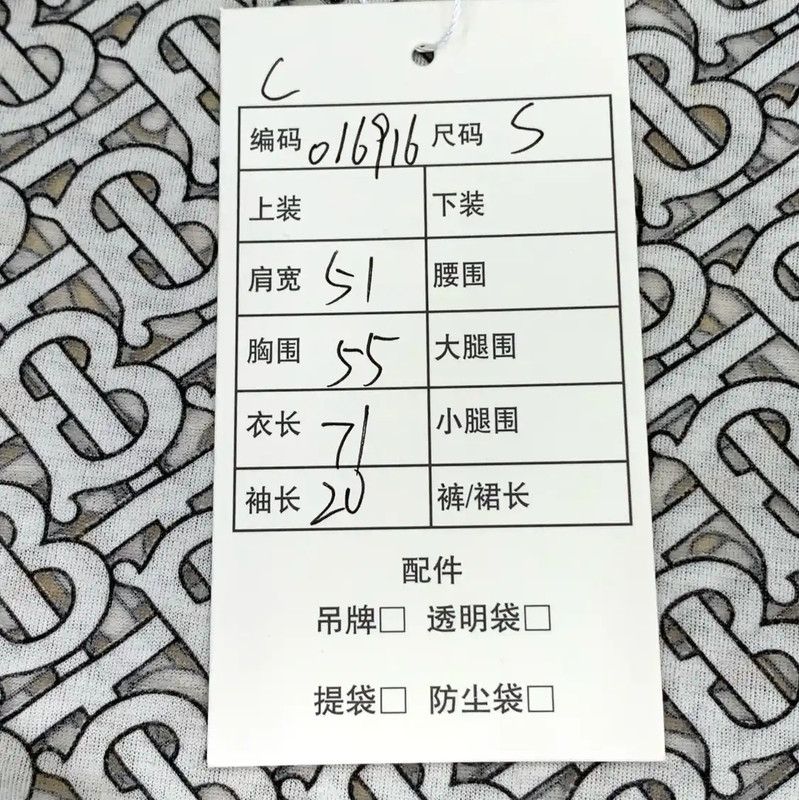 C
编码 016916 尺码 S
上装 下装
肩宽 51 腰围
胸围 55 大腿围
衣长 71 小腿围
袖长 20 裤/裙长
配件
吊牌□ 透明袋□
提袋□ 防尘袋□